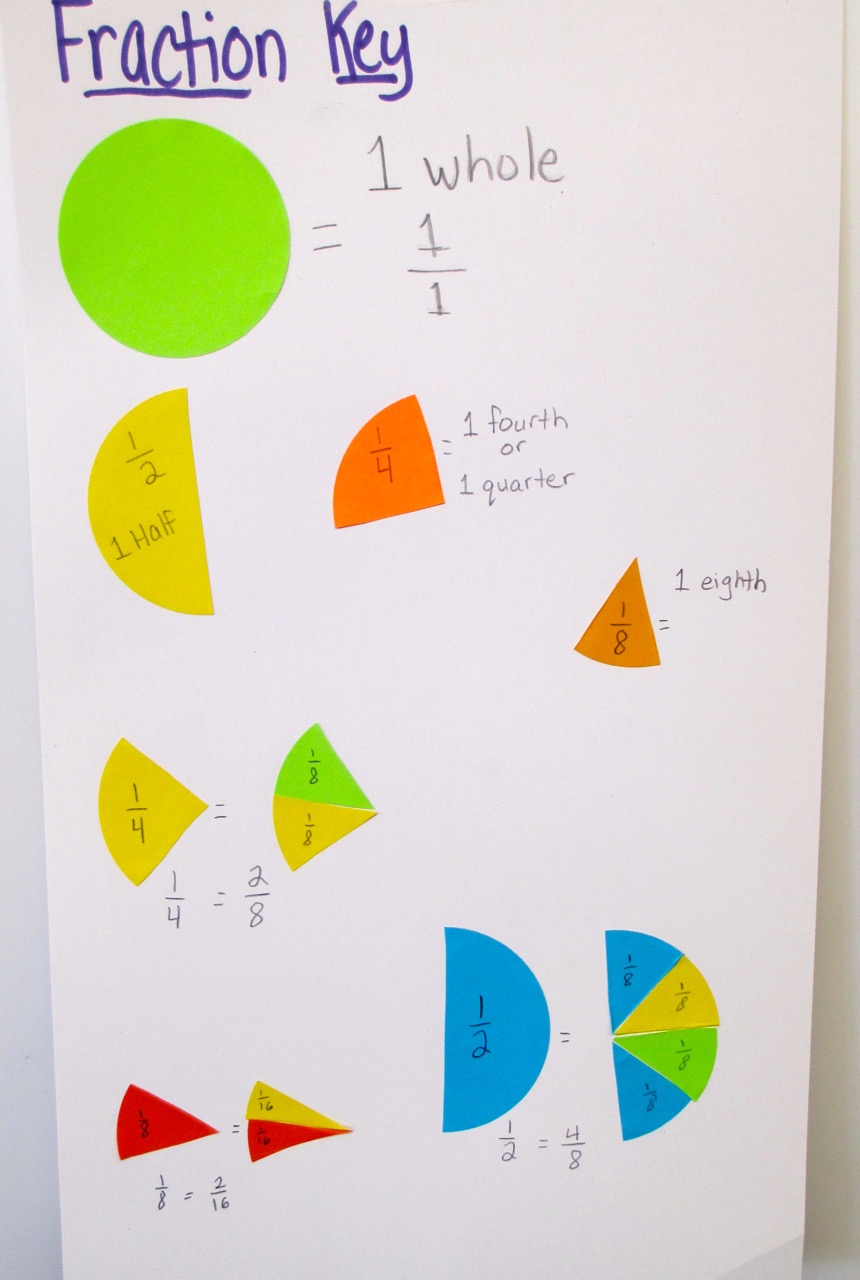 Fraction Key
1 whole
= 1/1
1/2
1 Half
1/4 = 1 fourth
or
1 quarter
1/8 = 1 eighth
1/4 = 1/8
1/8
1/4 = 2/8
1/2 = 1/8
1/8
1/8
1/8
1/2 = 4/8
1/8 = 1/16
1/16
1/8 = 2/16